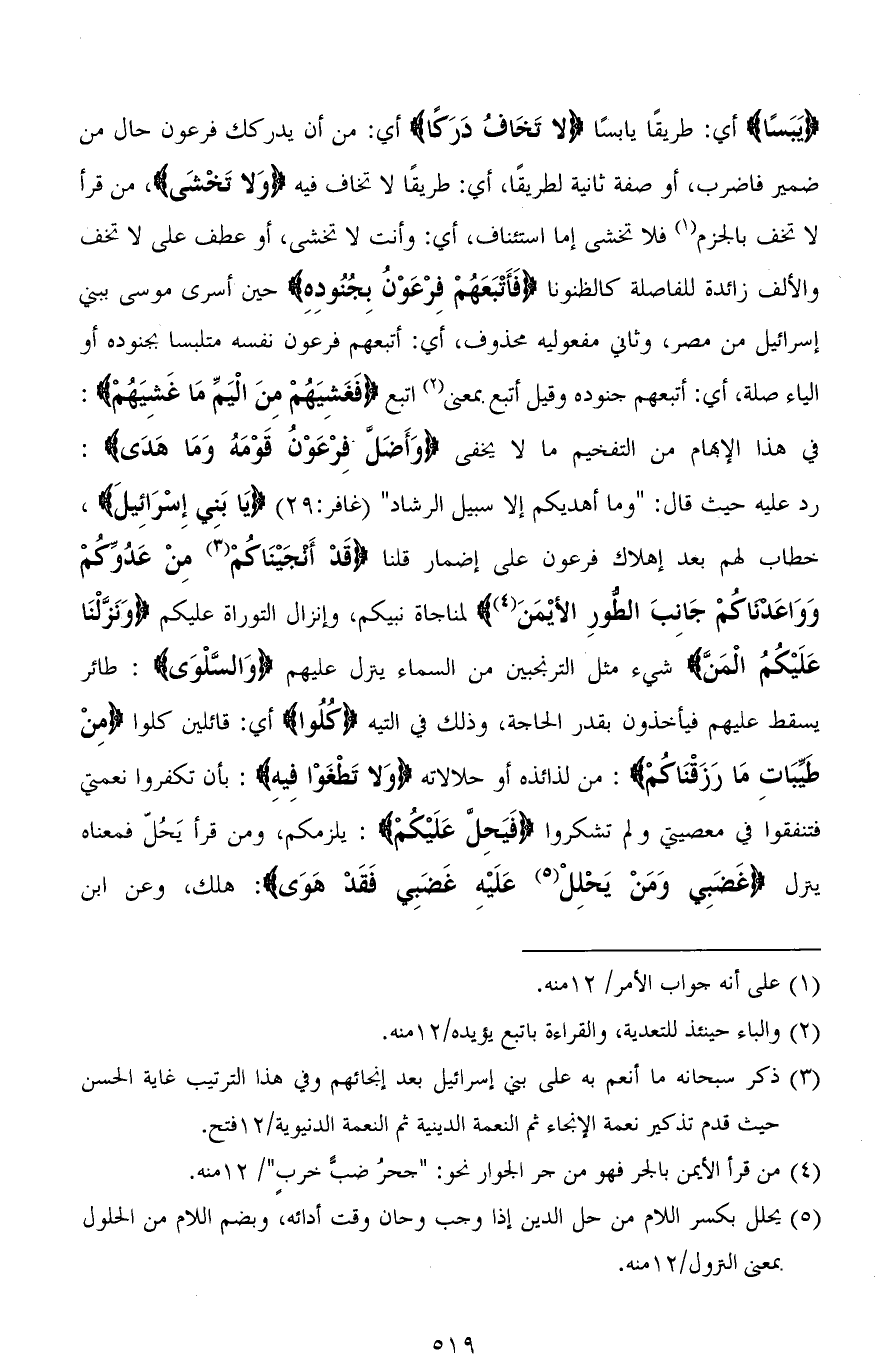 ﴿يَبَسًا﴾ أي: طريقًا يابسًا ﴿لا تَخَافُ دَرَكًا﴾ أي: من أن يدركك فرعون حال من
ضمير فاضرب، أو صفة ثانية لطريقًا، أي: طريقًا لا تخاف فيه ﴿وَلا تَخْشَى﴾، من قرأ
لا تخف بالجزم(١) فلا تخشى إما استئناف، أي: وأنت لا تخشى، أو عطف على لا تخف
والألف زائدة للفاصلة كالظنونا ﴿فَأَتْبَعَهُمْ فِرْعَوْنُ بِجُنُودِهِ﴾ حين أسرى موسى ببني
إسرائيل من مصر، وثاني مفعوليه محذوف، أي: أتبعهم فرعون نفسه متلبسا بجنوده أو
الباء صلة، أي: أتبعهم جنوده وقيل أتبع بمعنى(٢) اتبع ﴿فَغَشِيَهُمْ مِنَ الْيَمِّ مَا غَشِيَهُمْ﴾ :
في هذا الإبهام من التفخيم ما لا يخفى ﴿وَأَضَلَّ فِرْعَوْنُ قَوْمَهُ وَمَا هَدَى﴾ :
رد عليه حيث قال: "وما أهديكم إلا سبيل الرشاد" (غافر:٢٩) ﴿يَا بَنِي إِسْرَائِيلَ﴾ ،
خطاب لهم بعد إهلاك فرعون على إضمار قلنا ﴿قَدْ أَنْجَيْنَاكُمْ(٣) مِنْ عَدُوِّكُمْ
وَوَاعَدْنَاكُمْ جَانِبَ الطُّورِ الأَيْمَنَ(٤)﴾ لمناجاة نبيكم، وإنزال التوراة عليكم ﴿وَنَزَّلْنَا
عَلَيْكُمُ الْمَنَّ﴾ شيء مثل الترنجبين من السماء ينزل عليهم ﴿وَالسَّلْوَى﴾ : طائر
يسقط عليهم فيأخذون بقدر الحاجة، وذلك في التيه ﴿كُلُوا﴾ أي: قائلين كلوا ﴿مِنْ
طَيِّبَاتِ مَا رَزَقْنَاكُمْ﴾ : من لذائذه أو حلالاته ﴿وَلا تَطْغَوْا فِيهِ﴾ : بأن تكفروا نعمتي
فتنفقوا في معصيتي ولم تشكروا ﴿فَيَحِلَّ عَلَيْكُمْ﴾ : يلزمكم، ومن قرأ يَحُلّ فمعناه
ينزل ﴿غَضَبِي وَمَنْ يَحْلِلْ(٥) عَلَيْهِ غَضَبِي فَقَدْ هَوَى﴾: هلك، وعن ابن
(١) على أنه جواب الأمر/ ١٢منه.
(٢) والباء حينئذ للتعدية، والقراءة باتبع يؤيده/١٢منه.
(٣) ذكر سبحانه ما أنعم به على بني إسرائيل بعد إنجائهم وفي هذا الترتيب غاية الحسن
حيث قدم تذكير نعمة الإنجاء ثم النعمة الدينية ثم النعمة الدنيوية/١٢فتح.
(٤) من قرأ الأيمن بالجر فهو من جر الجوار نحو: "جحرُ ضبٍّ خربٍ"/ ١٢منه.
(٥) يحلل بكسر اللام من حل الدين إذا وجب وحان وقت أدائه، وبضم اللام من الحلول
بمعنى النزول/١٢منه.
٥١٩